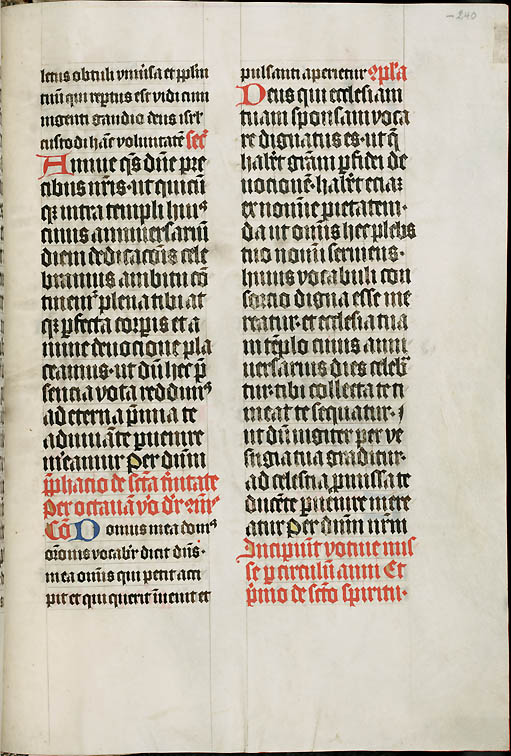 -240
letus obtuli vniũsa et pplm̃
tuũ qui reptus est vidi cum
ingenti gaudio deus isrl̃
custodi hãc voluntatẽ Secͬ
Annue q̃s dñe pre
cibus nr̃is · ut quicũ
qꝫ intra templi huiꝰ
cuius anniuersariũ
diem dedicacõis cele
bramus ambitu cõ
tinemͬ plena tibi at
qꝫ pfecta corpis et a
nime deuocione pla
ceamus · ut dũ hec p̃
sencia vota reddimꝰ
ad eterna p̃mia te
adiuuãte puenire
m̃eamur Per dñm
p̃phacio de sct̃a t̃initate
Per octauã v̾o dr̃
Cõ Domus mea domꝰ
or̃onis vocabr̃ dicit dñs ·
mea om̃is qui petit acci
pit et qui querit ĩuenit et
pulsanti aperietur 9pl̃a
Deus qui ecclesiam
tuam sponsam voca
re dignatus es · ut q̃
hab̃et gr̃am p fidei de
uocionẽ · hab̃et eciaꝫ
ex nomine pietatem ·
da ut om̃is hec plebs
tuo nomĩ seruiens ·
huius vocabuli con
sorcio digna esse me
reatur · et ecclesia tua
in tẽplo cuius anni
uersarius dies celebr̃
tur · tibi collecta te ti
meat te sequatur ·
ut dũ iugiter per ve
stigia tua graditur ·
ad celestia p̃missa te
ducẽte p̃uenire mere
atur Per dñm nr̃m
Incipiũt votiue mis
se p circulũ anni Et
p̃mo de sct̃o spiritu ·